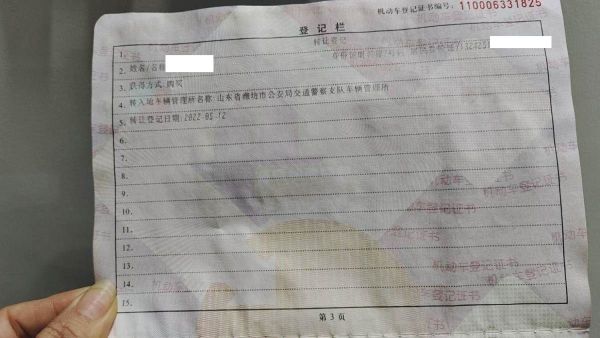 机动车登记证书编号: 110006331825
登记栏
1. 转让登记
2. 姓名/名称
3. 获得方式: 购买
4. 转入地车辆管理所名称: 山东省潍坊市公安局交通警察支队车辆管理所
5. 转让登记日期: 2022-05-12
6.
7.
8.
9.
10.
11.
12.
13.
14.
15.
第 3 页
机动车登记证书
机动车登记证书
机动车登记证书